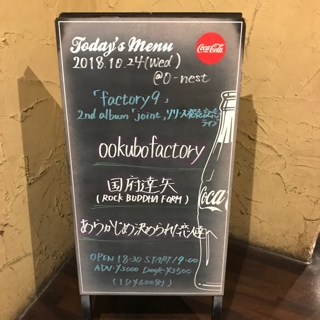 Today's Menu
Coca-Cola
2018.10.24(wed)
@O-nest
「factory9」
2nd album「joint」リリース記念
ライブ
ookubofactory
国府達矢
(ROCK BUDDHA FORM)
あらかじめ決められた恋人たちへ
OPEN 18:30 START 19:00
ADV ¥3000 Door ¥3500
(1D ¥600別)